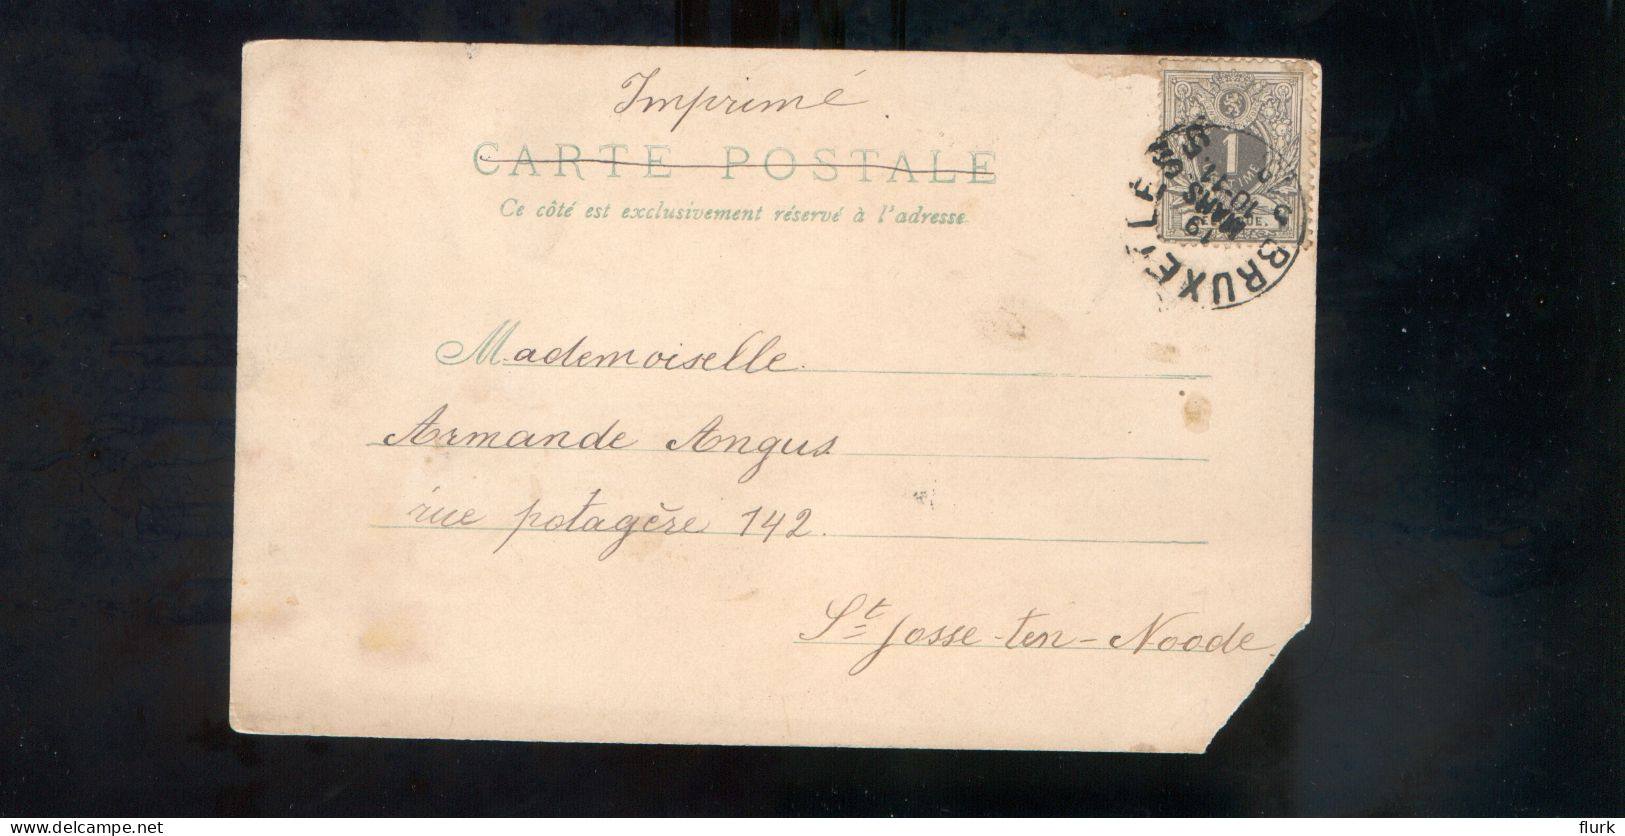 Imprimé
CARTE POSTALE
Ce côté est exclusivement réservé à l'adresse
1
BRUXELLES
19
MARS
10-11
Mademoiselle
Armande Angus
rue potagère 142.
St Josse-ten-Noode.
flurk